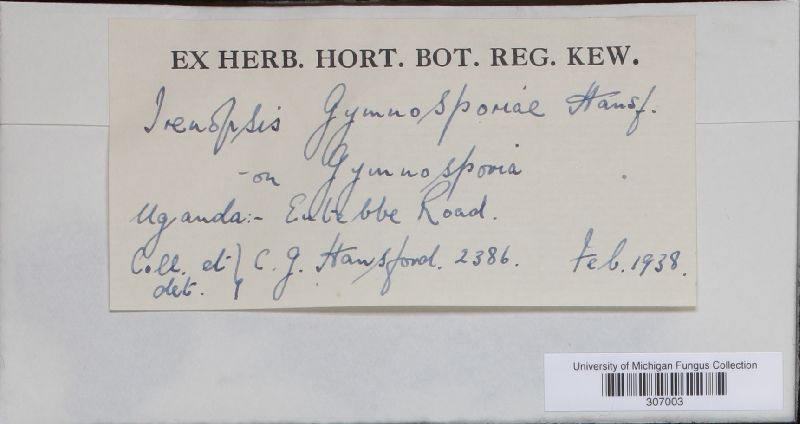 EX HERB. HORT. BOT. REG. KEW.
Irenopsis Gymnosporiae Hansf.
- on Gymnosporia
Uganda:- Entebbe Road.
Coll. et } C. G. Hansford. 2386. Feb. 1938.
det.
University of Michigan Fungus Collection
307003